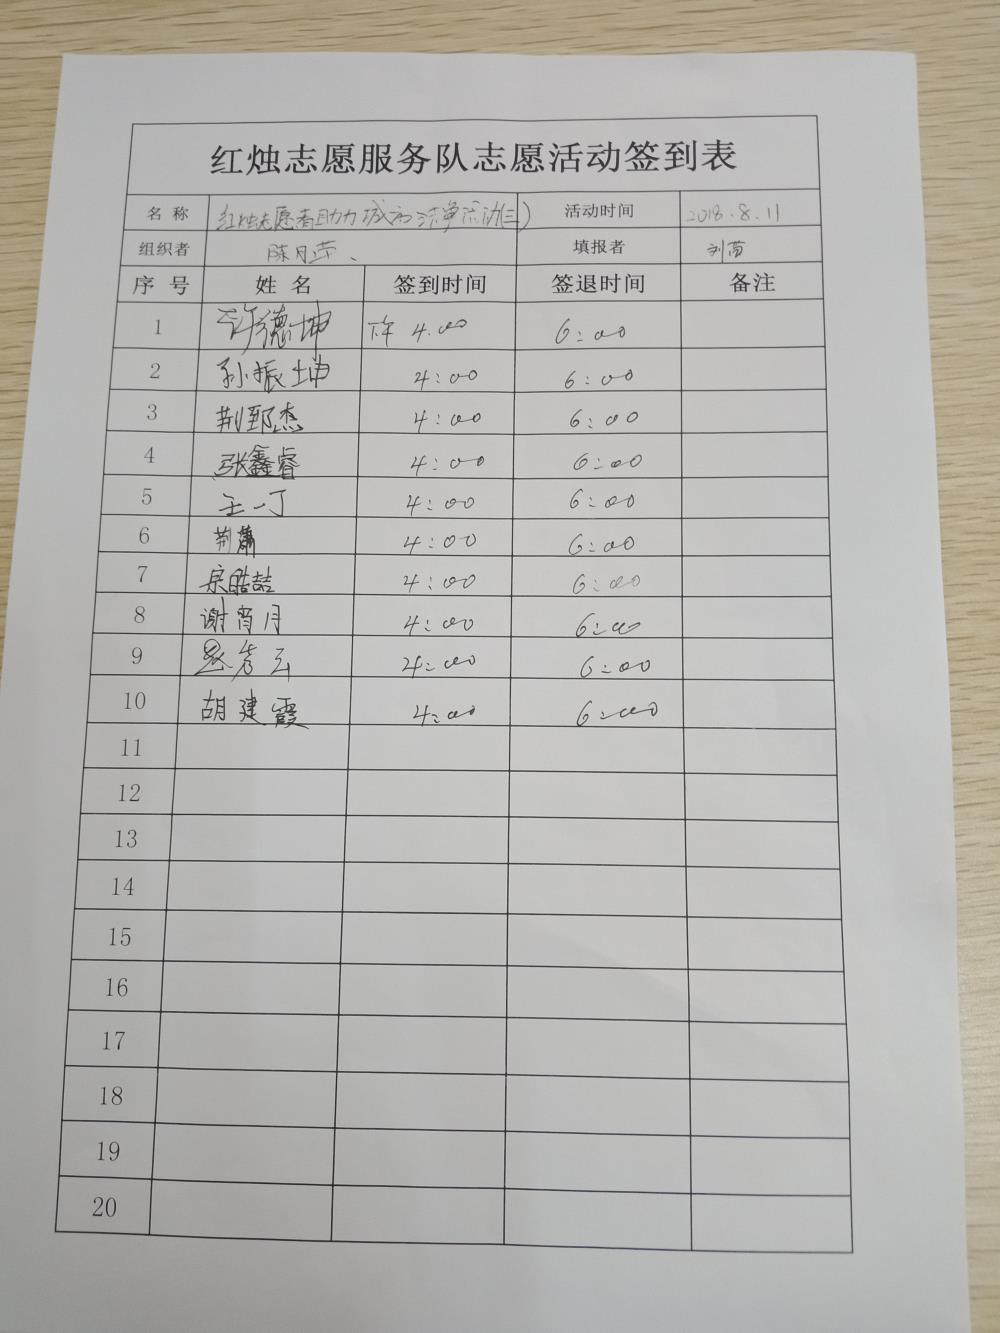 红烛志愿服务队志愿活动签到表
名 称 红烛志愿者助力城市洁净活动(三) 活动时间 2018.8.11
组织者 陈月萍、 填报者 刘苗
序 号 姓 名 签到时间 签退时间 备注
1 许德坤 4:00 6:00
2 孙振坤 4:00 6:00
3 荆郅杰 4:00 6:00
4 张鑫睿 4:00 6:00
5 王一丁 4:00 6:00
6 荆萧 4:00 6:00
7 宗皓喆 4:00 6:00
8 谢宵月 4:00 6:00
9 4:00 6:00
10 胡建霞 4:00 6:00
11
12
13
14
15
16
17
18
19
20